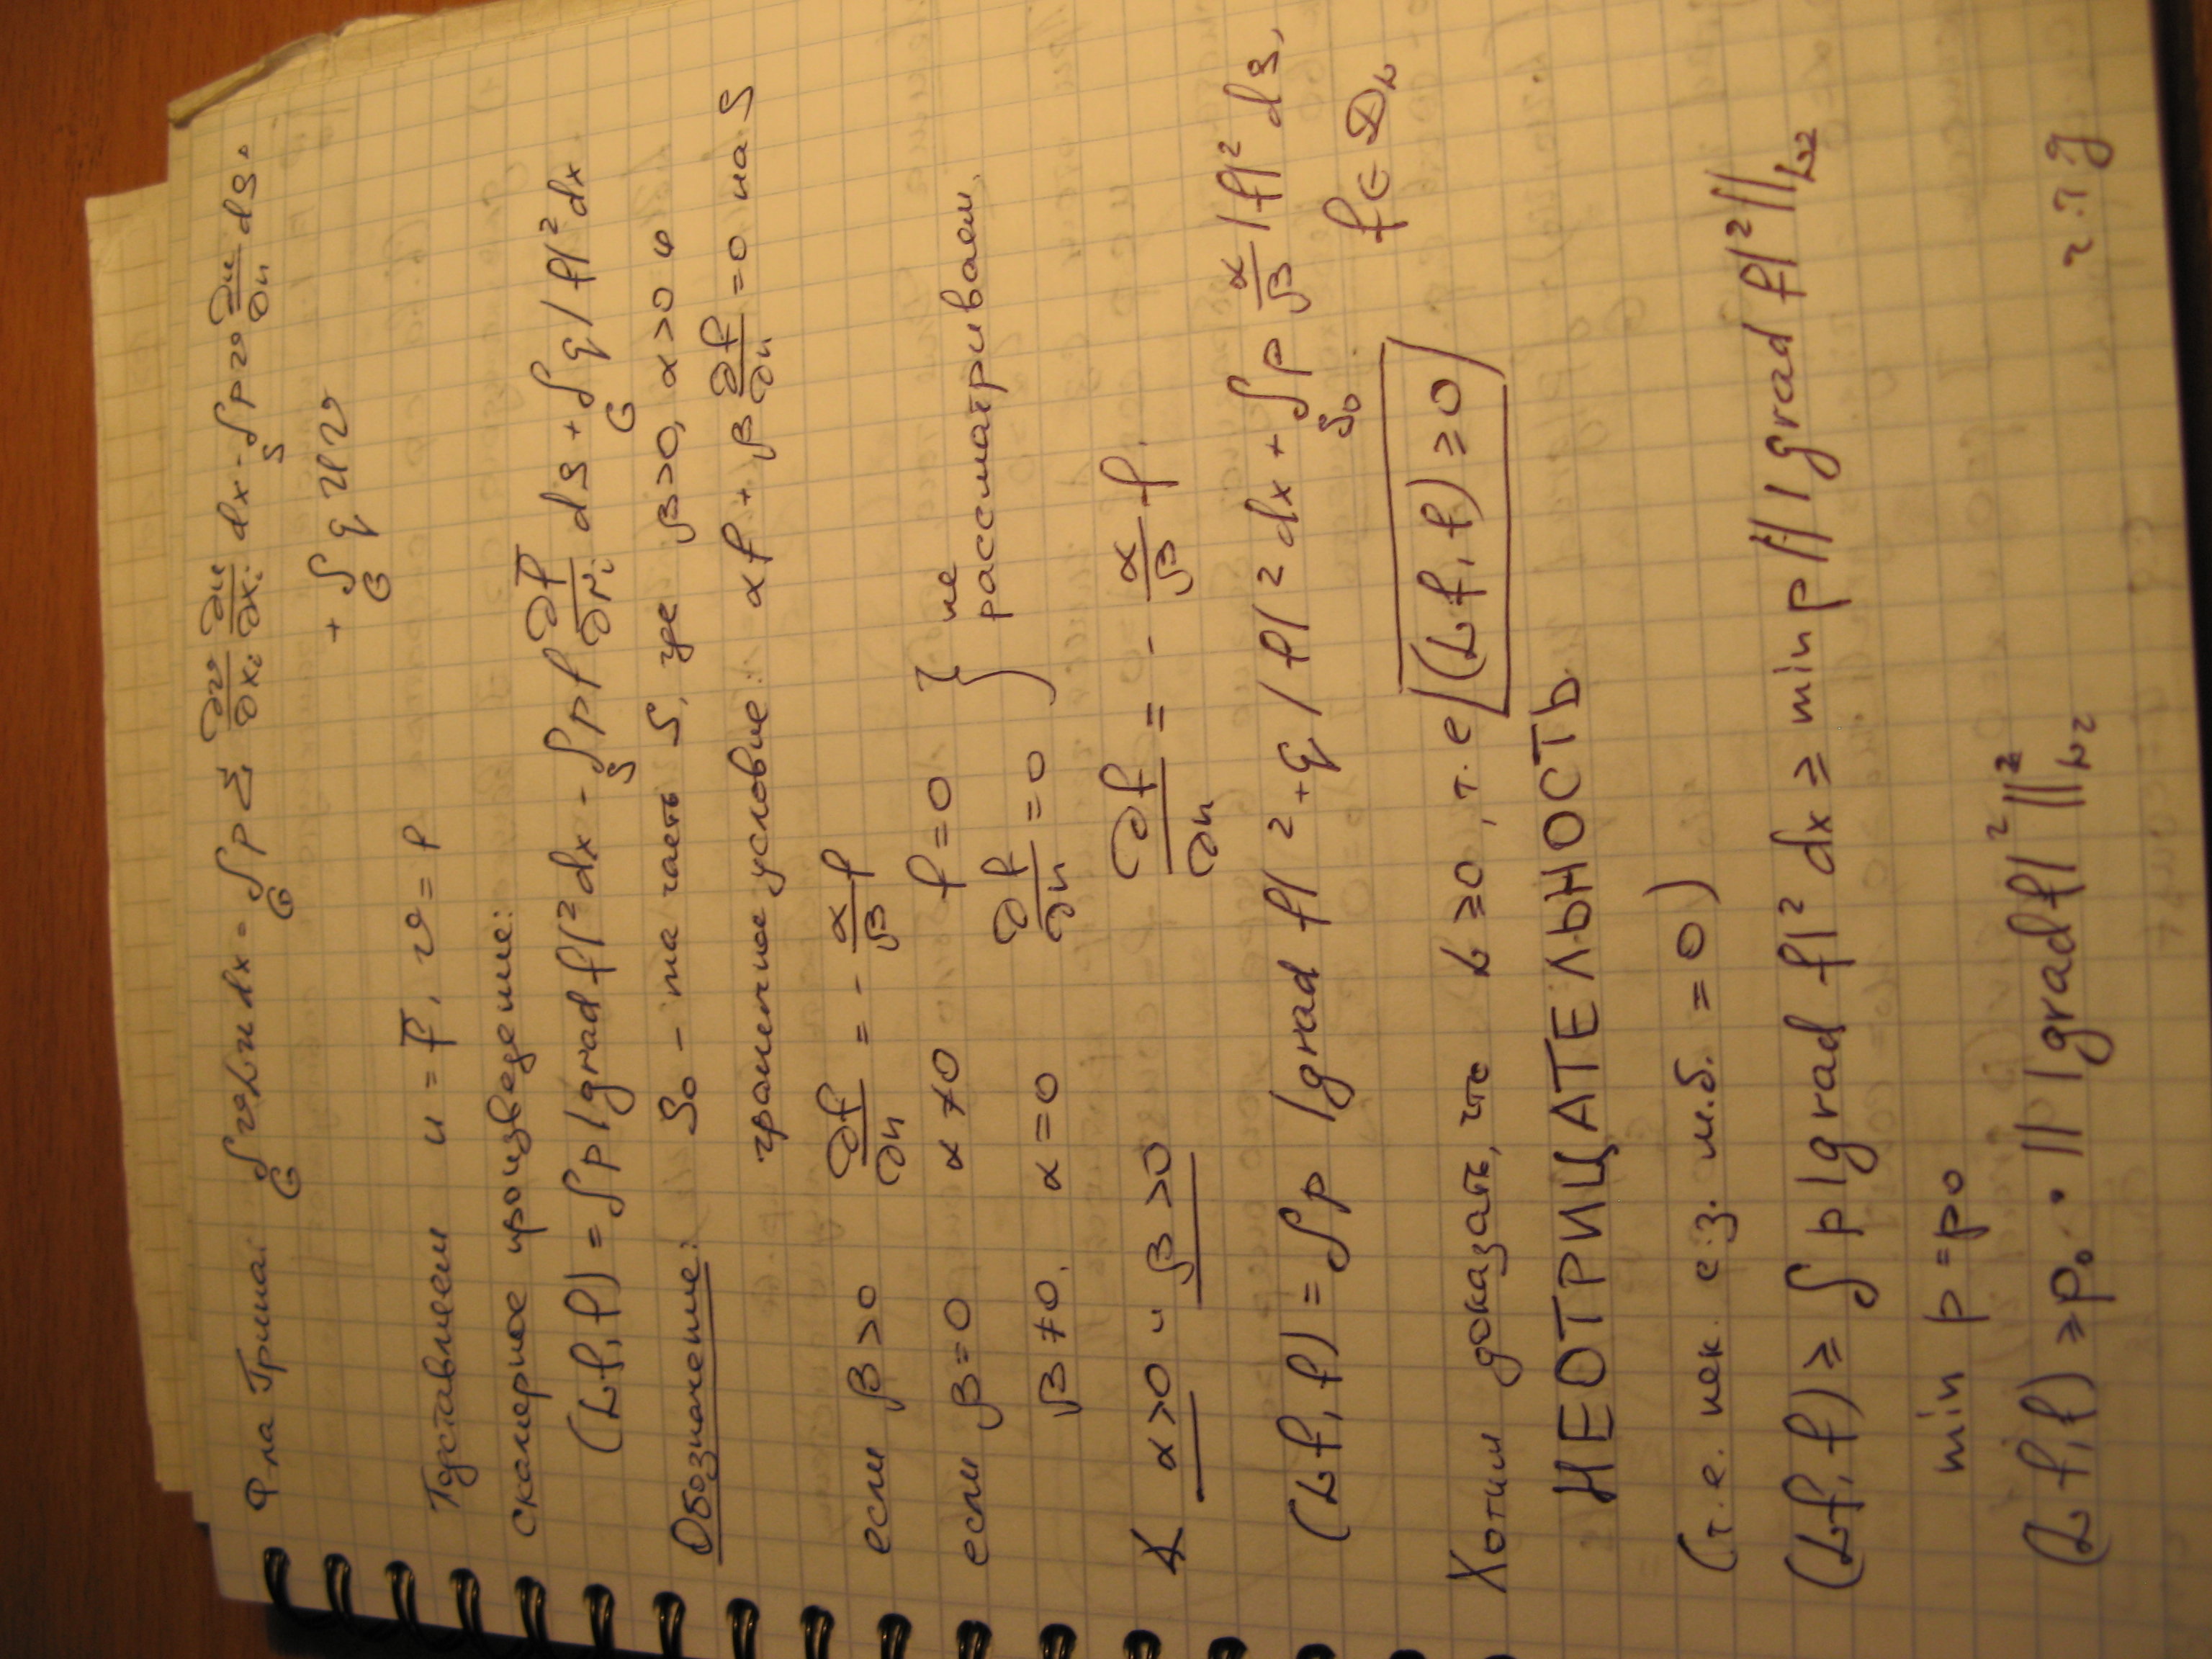 Ф-ла Грина: ∫_G vLu dx = ∫_G p Σ ∂v/∂xᵢ ∂u/∂xᵢ dx - ∫_S p v ∂u/∂n ds.
+ ∫_G q u v
Подставляем u = f̅, v = f
скалярное произведение:
(Lf, f) = ∫ p |grad f|² dx - ∫_S p f ∂f̅/∂nᵢ ds + ∫_G q |f|² dx
Обозначение: S₀ - та часть S, где β>0, α>0 и
граничное условие: αf + β ∂f/∂n = 0 на S
если β>0 ∂f/∂n = - α/β f
если β=0 α≠0 f=0 } не
β≠0. α=0 ∂f/∂n = 0 } рассматриваем.
α>0 и β>0 ∂f/∂n = - α/β f.
(Lf, f) = ∫ p |grad f|² + q |f|² dx + ∫_S₀ p α/β |f|² ds,
f ∈ D_L
Хотим доказать, что L ≥0, т.е (Lf, f) ≥ 0
НЕОТРИЦАТЕЛЬНОСТЬ.
(т.е. нек. с.з. м.б. = 0)
(Lf, f) ≥ ∫ p |grad f|² dx ≥ min p || |grad f|² ||_L₂
min p = p₀
(Lf, f) ≥ p₀ · || |grad f|² ||²_L₂
ч.т.д